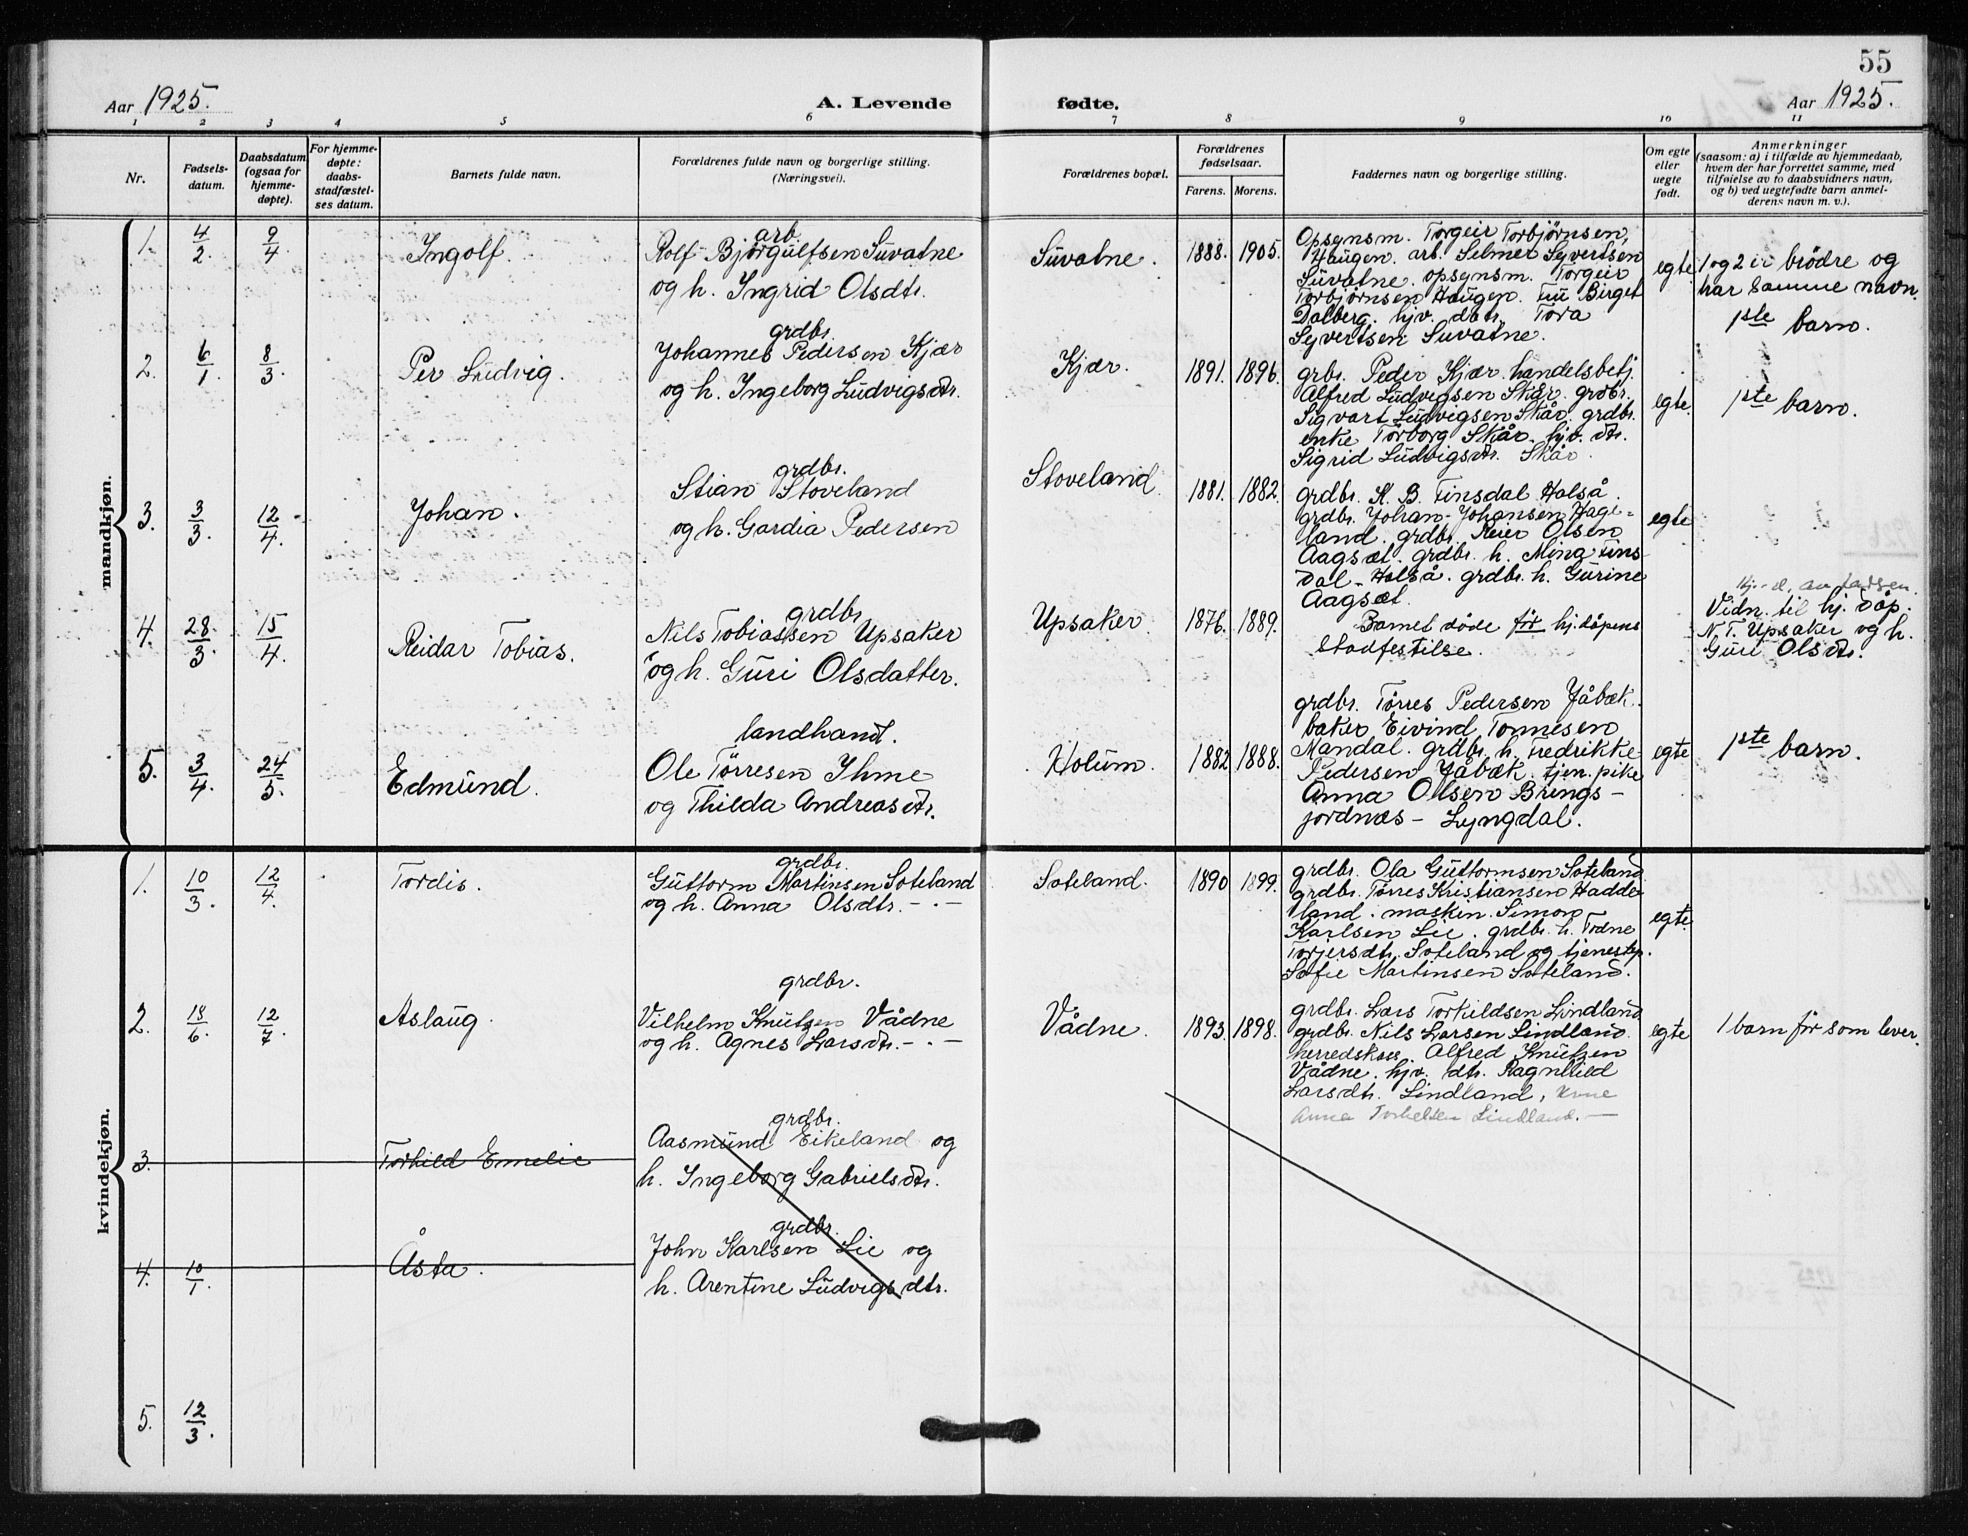 55
Aar 1925.
A. Levende fødte.
Aar 1925.
1 2 3 4 5 6 7 8 9 10 11
Nr.
Fødsels-
datum.
Daabsdatum
(ogsaa for
hjemme-
døpte).
For hjemme-
døpte:
daabs-
stadfæstel-
ses datum.
Barnets fulde navn.
Forældrenes fulde navn og borgerlige stilling.
(Næringsvei).
Forældrenes bopæl.
Forældrenes
fødselsaar.
Farens. Morens.
Faddernes navn og borgerlige stilling.
Om egte
eller
uegte
født.
Anmerkninger
(saasom: a) i tilfælde av hjemmedaab,
hvem der har forrettet samme, med
tilføielse av to daabsvidners navn,
og b) ved uegtefødte barn anmel-
derens navn m. v.).
mandkjøn.
1. 4/2. 9/4 Ingolf.
arb.
Rolf Bjørgulfsen Suvatne
og h. Ingrid Olsdtr.
Suvatne. 1888. 1905.
Opsynsm. Torgeir Torbjørnsen,
Haugen. arb. Selmer Syvertsen
Suvatne. opsynsm. Torgeir
Torbjørnsen Haugen. Fru Birget
Dalberg. hjv. datr. Tora
Syvertsen Suvatne.
egte
1 og 2 er brødre og
har samme navn.
1ste barn.
2. 6/1. 8/3. Per Ludvig.
grdbr.
Johannes Pedersen Kjær
og h. Ingeborg Ludvigsdtr.
Kjær. 1891. 1896.
grbr. Peder Kjær. handelsbetj.
Alfred Ludvigsen Skår. grdbr.
Sigvart Ludvigsen Skår. grdbr.
enke Torborg Skår. hjv. dtr.
Sigrid Ludvigsdtr. Skår.
egte.
1ste barn.
3. 3/3. 12/4. Johan.
grdbr.
Stian Stoveland
og h. Gardia Pedersen
Stoveland. 1881. 1882.
grdbr. K. B. Finsdal Holså.
grdbr. Johan Johansen Hage-
land. grdbr. Reier Olsen
Aagsæt. grdbr. h. Mina Fins-
dal - Holså. grdbr. h. Gurine
Aagsæt.
egte
4. 28/3 15/4. Reidar Tobias.
grdbr.
Nils Tobiassen Upsaker
og h. Guri Olsdatter.
Upsaker. 1876. 1889.
Barnet døde før hj. dåpens
stadfestilse.
Hj.-d. av
Vidn. til hj. dåp.
N. T. Upsaker og h.
Guri Olsdtr.
5. 3/4. 24/5. Edmund.
landhand.
Ole Tørresen Ihme
og Thilda Andreasdtr.
Holum. 1882 1888.
grdbr. Tørres Pedersen Jåbæk.
baker Eivind Tonnesen
Mandal. grdbr. h. Fredrikke
Pedersen Jåbæk. tjen. pike
Anna Olsen Brings-
jordnæs - Lyngdal.
egte
1ste barn.
kvindekjøn.
1. 10/3. 12/4. Tordis.
grdbr.
Guttorm Martinsen Soteland
og h. Anna Olsdtr. - . -
Soteland. 1890 1899.
grdbr. Ola Guttormsen Soteland
grdbr. Tørres Kristiansen Hadde-
land. maskin. Simon
Karlsen Lie. grdbr. h. Todne
Torjersdtr. Soteland og tjenestep.
Sofie Martinsen Soteland.
egte.
2. 18/6. 12/7. Aslaug.
grdbr.
Vilhelm Knutzen Vådne
og h. Agnes Larsdtr. - . -
Vådne. 1893. 1898.
grdbr. Lars Torkildsen Lindland
grdbr. Nils Larsen Lindland.
herredskass. Alfred Knutzen
Vådne. hjv. dtr. Ragnhild
Larsdtr. Lindland, kone
Anna Torkelsen Lindland. -
egte
1 barn før som lever.
3. Torhild Emelie
grdbr.
Aasmund Eikeland og
h. Ingeborg Gabrielsdtr.
4. 10/1. Åsta.
grdbr.
John Karlsen Lie og
h. Arentine Ludvigsdtr.
5. 12/3.